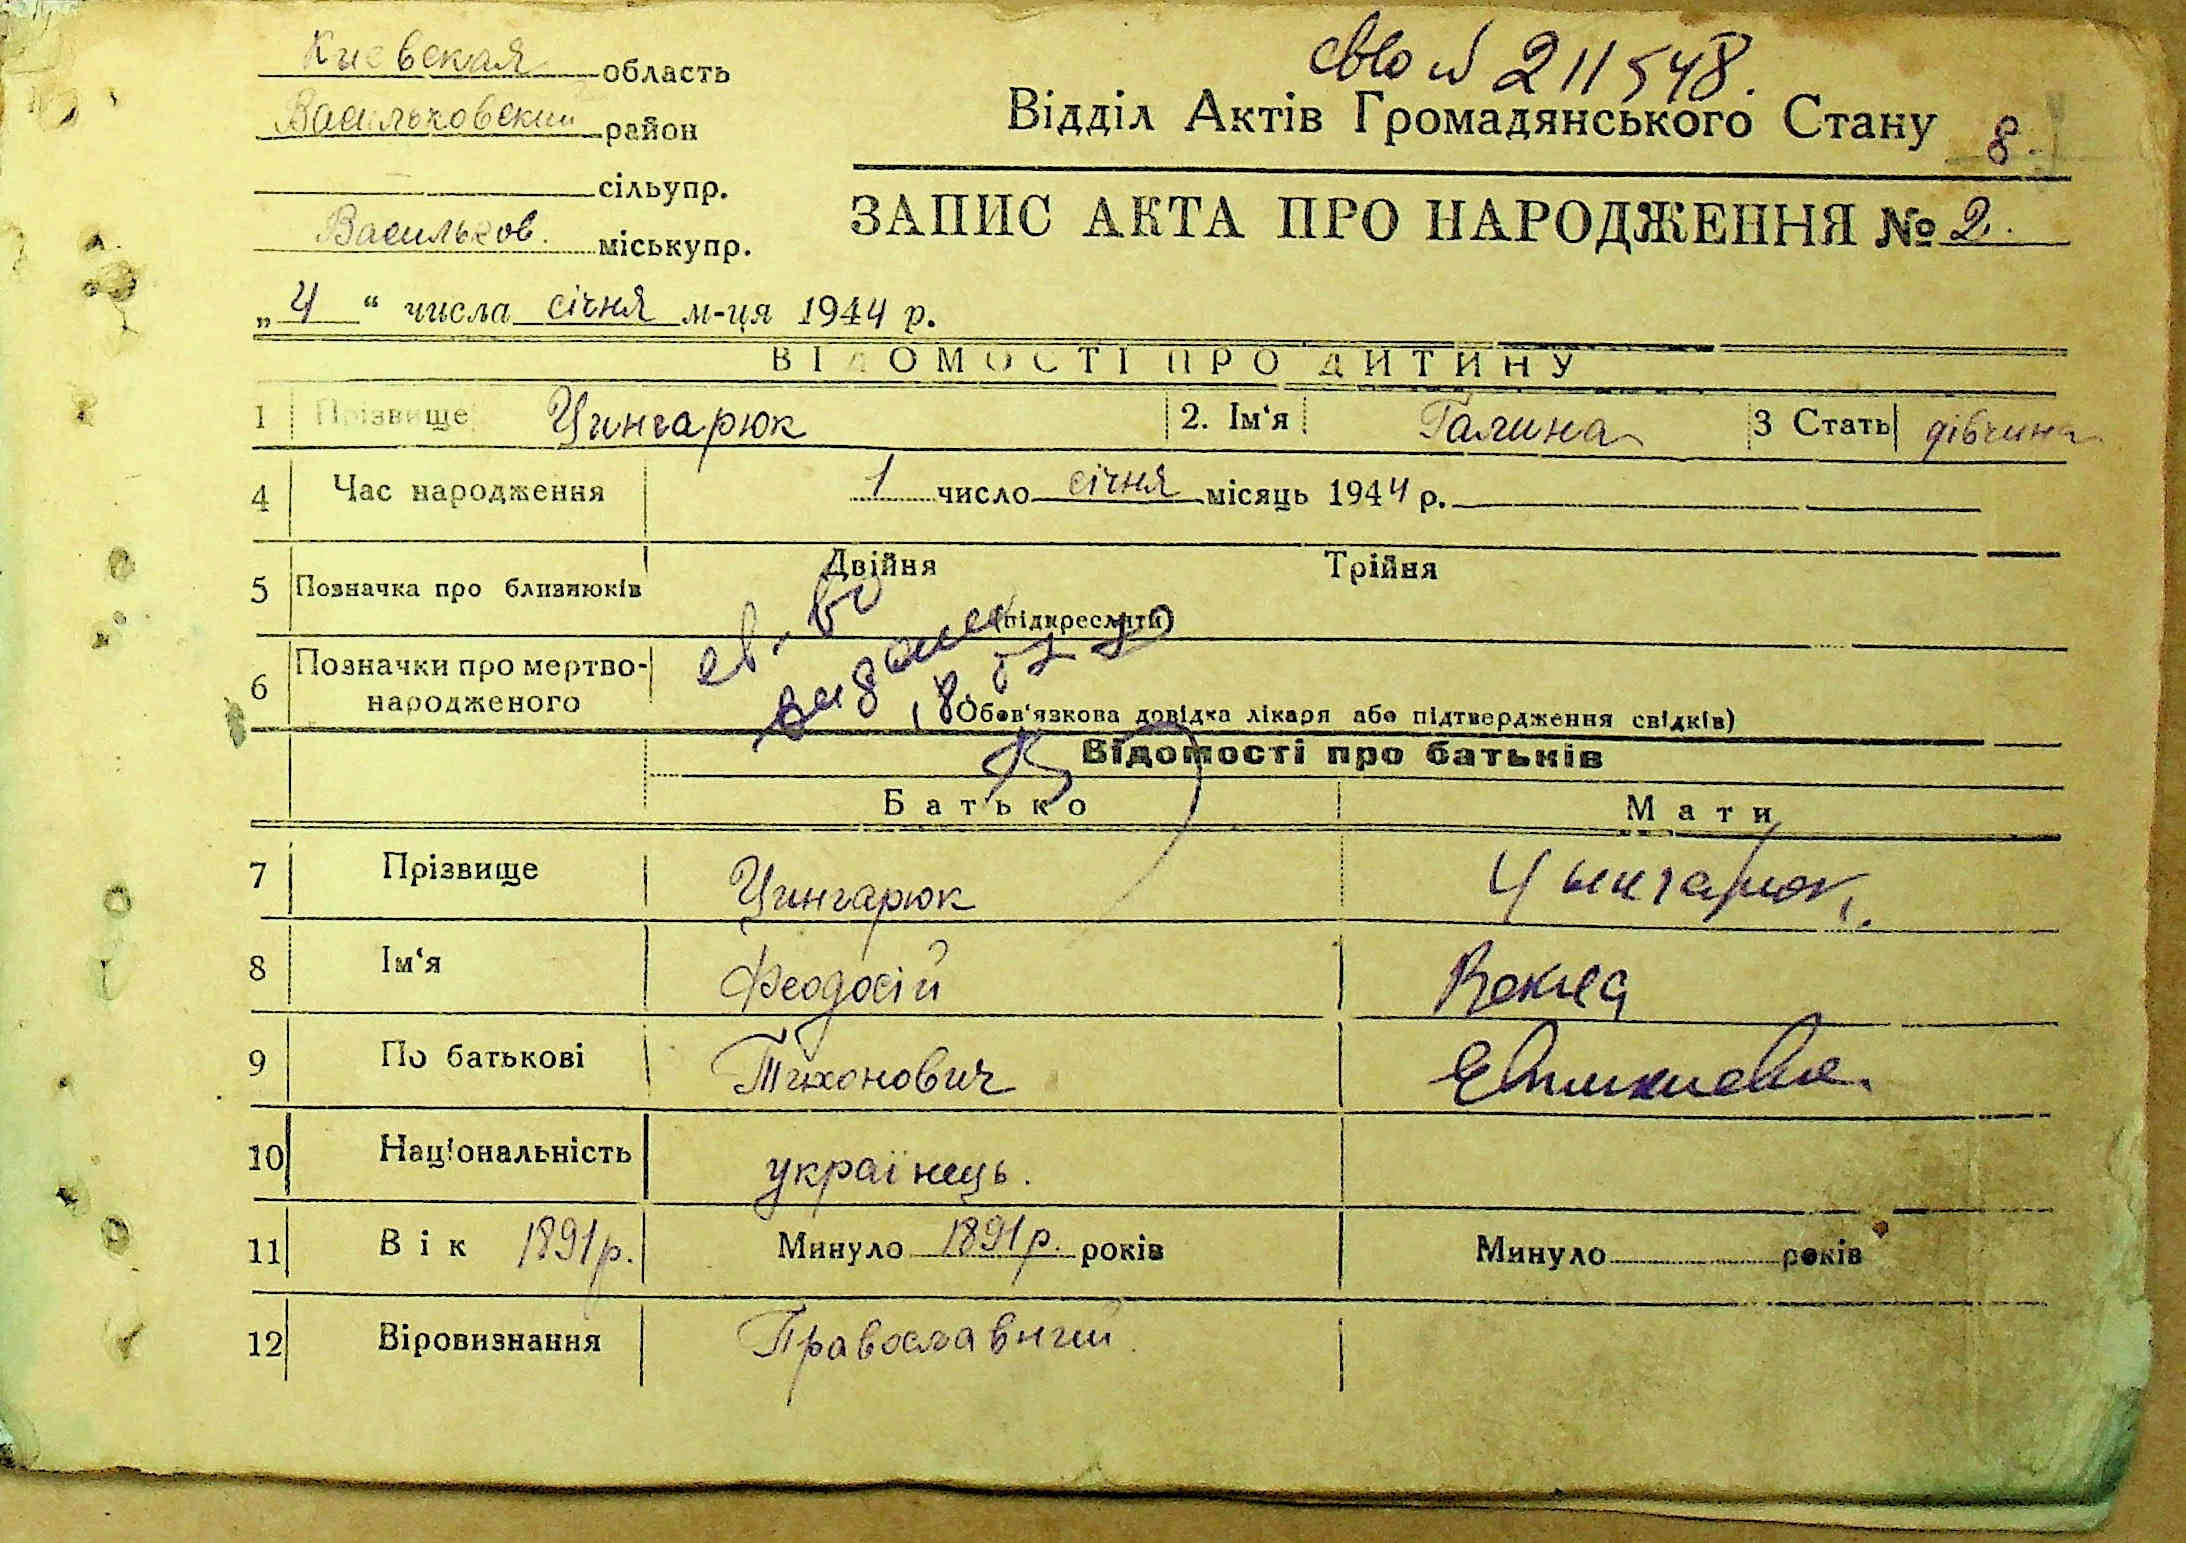 Киевская область
Васильковский район
сільупр.
Васильков. міськупр.
„4“ числа січня м-ця 1944 р.
сво № 211548.
Відділ Актів Громадянського Стану 8.
ЗАПИС АКТА ПРО НАРОДЖЕННЯ № 2.
ВІДОМОСТІ ПРО ДИТИНУ
1 Прізвище Цингарюк 2. Ім‘я Галина 3 Стать дівчина
4 Час народження 1 число січня місяць 1944 р.
5 Позначка про близнюків Двійня Трійня
(підкреслити)
св-во
видане
6 Позначки про мертво-
народженого
(Обов‘язкова довідка лікаря або підтвердження свідків)
Відомості про батьків
Батько Мати
7 Прізвище Цингарюк Цынгарюк.
8 Ім‘я Феодосій Векла
9 По батькові Тихонович
10 Національність українець.
11 Вік 1891р. Минуло 1891р. років Минуло років
12 Віровизнання Православний